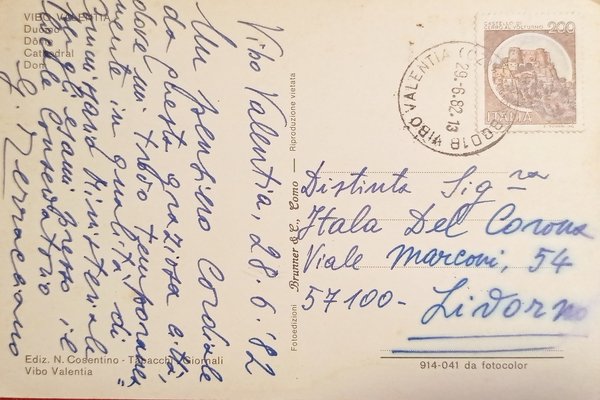 VIBO VALENTIA
Duomo
Dôme
Cathedral
Dom
Vibo Valentia, 28.6.'82
Un pensiero cordiale
da questa graziosa città,
dove mi trovo temporanea
mente in qualità di
Commissario Ministeriale
agli esami presso il
locale Conservatorio
G.
Distinta Sig.ra
Itala Del Corona
Viale Marconi, 54
57100- Livorno
Fotoedizioni Brunner & C., Como — Riproduzione vietata
Ediz. N. Cosentino - Tabacchi - Giornali
Vibo Valentia
914-041 da fotocolor
88018 VIBO VALENTIA (CZ)
29.6.82.13
200
ITALIA